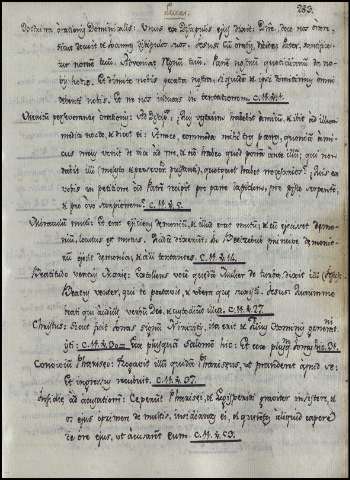 Lucas. 283.
Doctrina orationis Dominicalis: Unus ex Discipulis ejus dixit: Dñe, doce nos orare,
sicut docuit et Joannes discipulos suos. Jesus: cum oratis, dicite: Pater, sanctifice-
tur nomen tuum. Adveniat Regnum tuum. Panem nostrum quotidianum da no-
bis hodie. Et dimitte nobis peccata nostra, siquidem et ipsi dimittimus omni
debenti nobis. Et ne nos inducas in tentationem. C. 11. v. 1.
orationis: ad Discip.: Quis vestrum habebit amicum, et ibit ad illum
media nocte, et dicet ei: Amice, commoda mihi tres panes, quoniam ami-
cus meus venit de via ad me, et non habeo quod ponam ante illum; qui non
dabit illi quotquot habet necessarios? Quis ex
vobis in petitione dat Patri recipit pro pane lapidem, pro pisce serpente,
et pro ovo scorpionem? C. 11. v. 5.
Miraculum muti: Et erat ejiciens demonium, et illud erat mutum; et cum ejecisset demo-
nium, locutus est mutus. Quidam dixerunt: In Beelzebub principe demonio-
rum ejecit demonia, et alii tentantes. C. 11. v. 14.
Beatitudo ventris Mariæ: Extollens vocem quædam Mulier de turba dixit illi
Beatus venter, qui te portavit, et ubera quæ suxisti. Jesus: Quinimmo
beati qui audiunt verbum Dei, et custodiunt illud. C. 11. v. 27.
Christus: Sicut fuit Jonas signum Ninivitis, ita erit et Filius Hominis generati
isti: C. 11. v. 30. Ecce plusquam Salomon hic: Et ecce plusquam Jonas hic. 31.
Convivium Pharisei: Rogavit illum quidam Phariseus, ut pranderet apud se:
Et ingressus recubuit. C. 11. v. 37.
Insidie ad accusationem: Ceperunt Pharisei, et Legisperiti graviter insistere, et
os ejus opprimere de multis, insidiantes ei, et querentes aliquid capere
de ore ejus, ut accusarent eum. C. 11. v. 53.